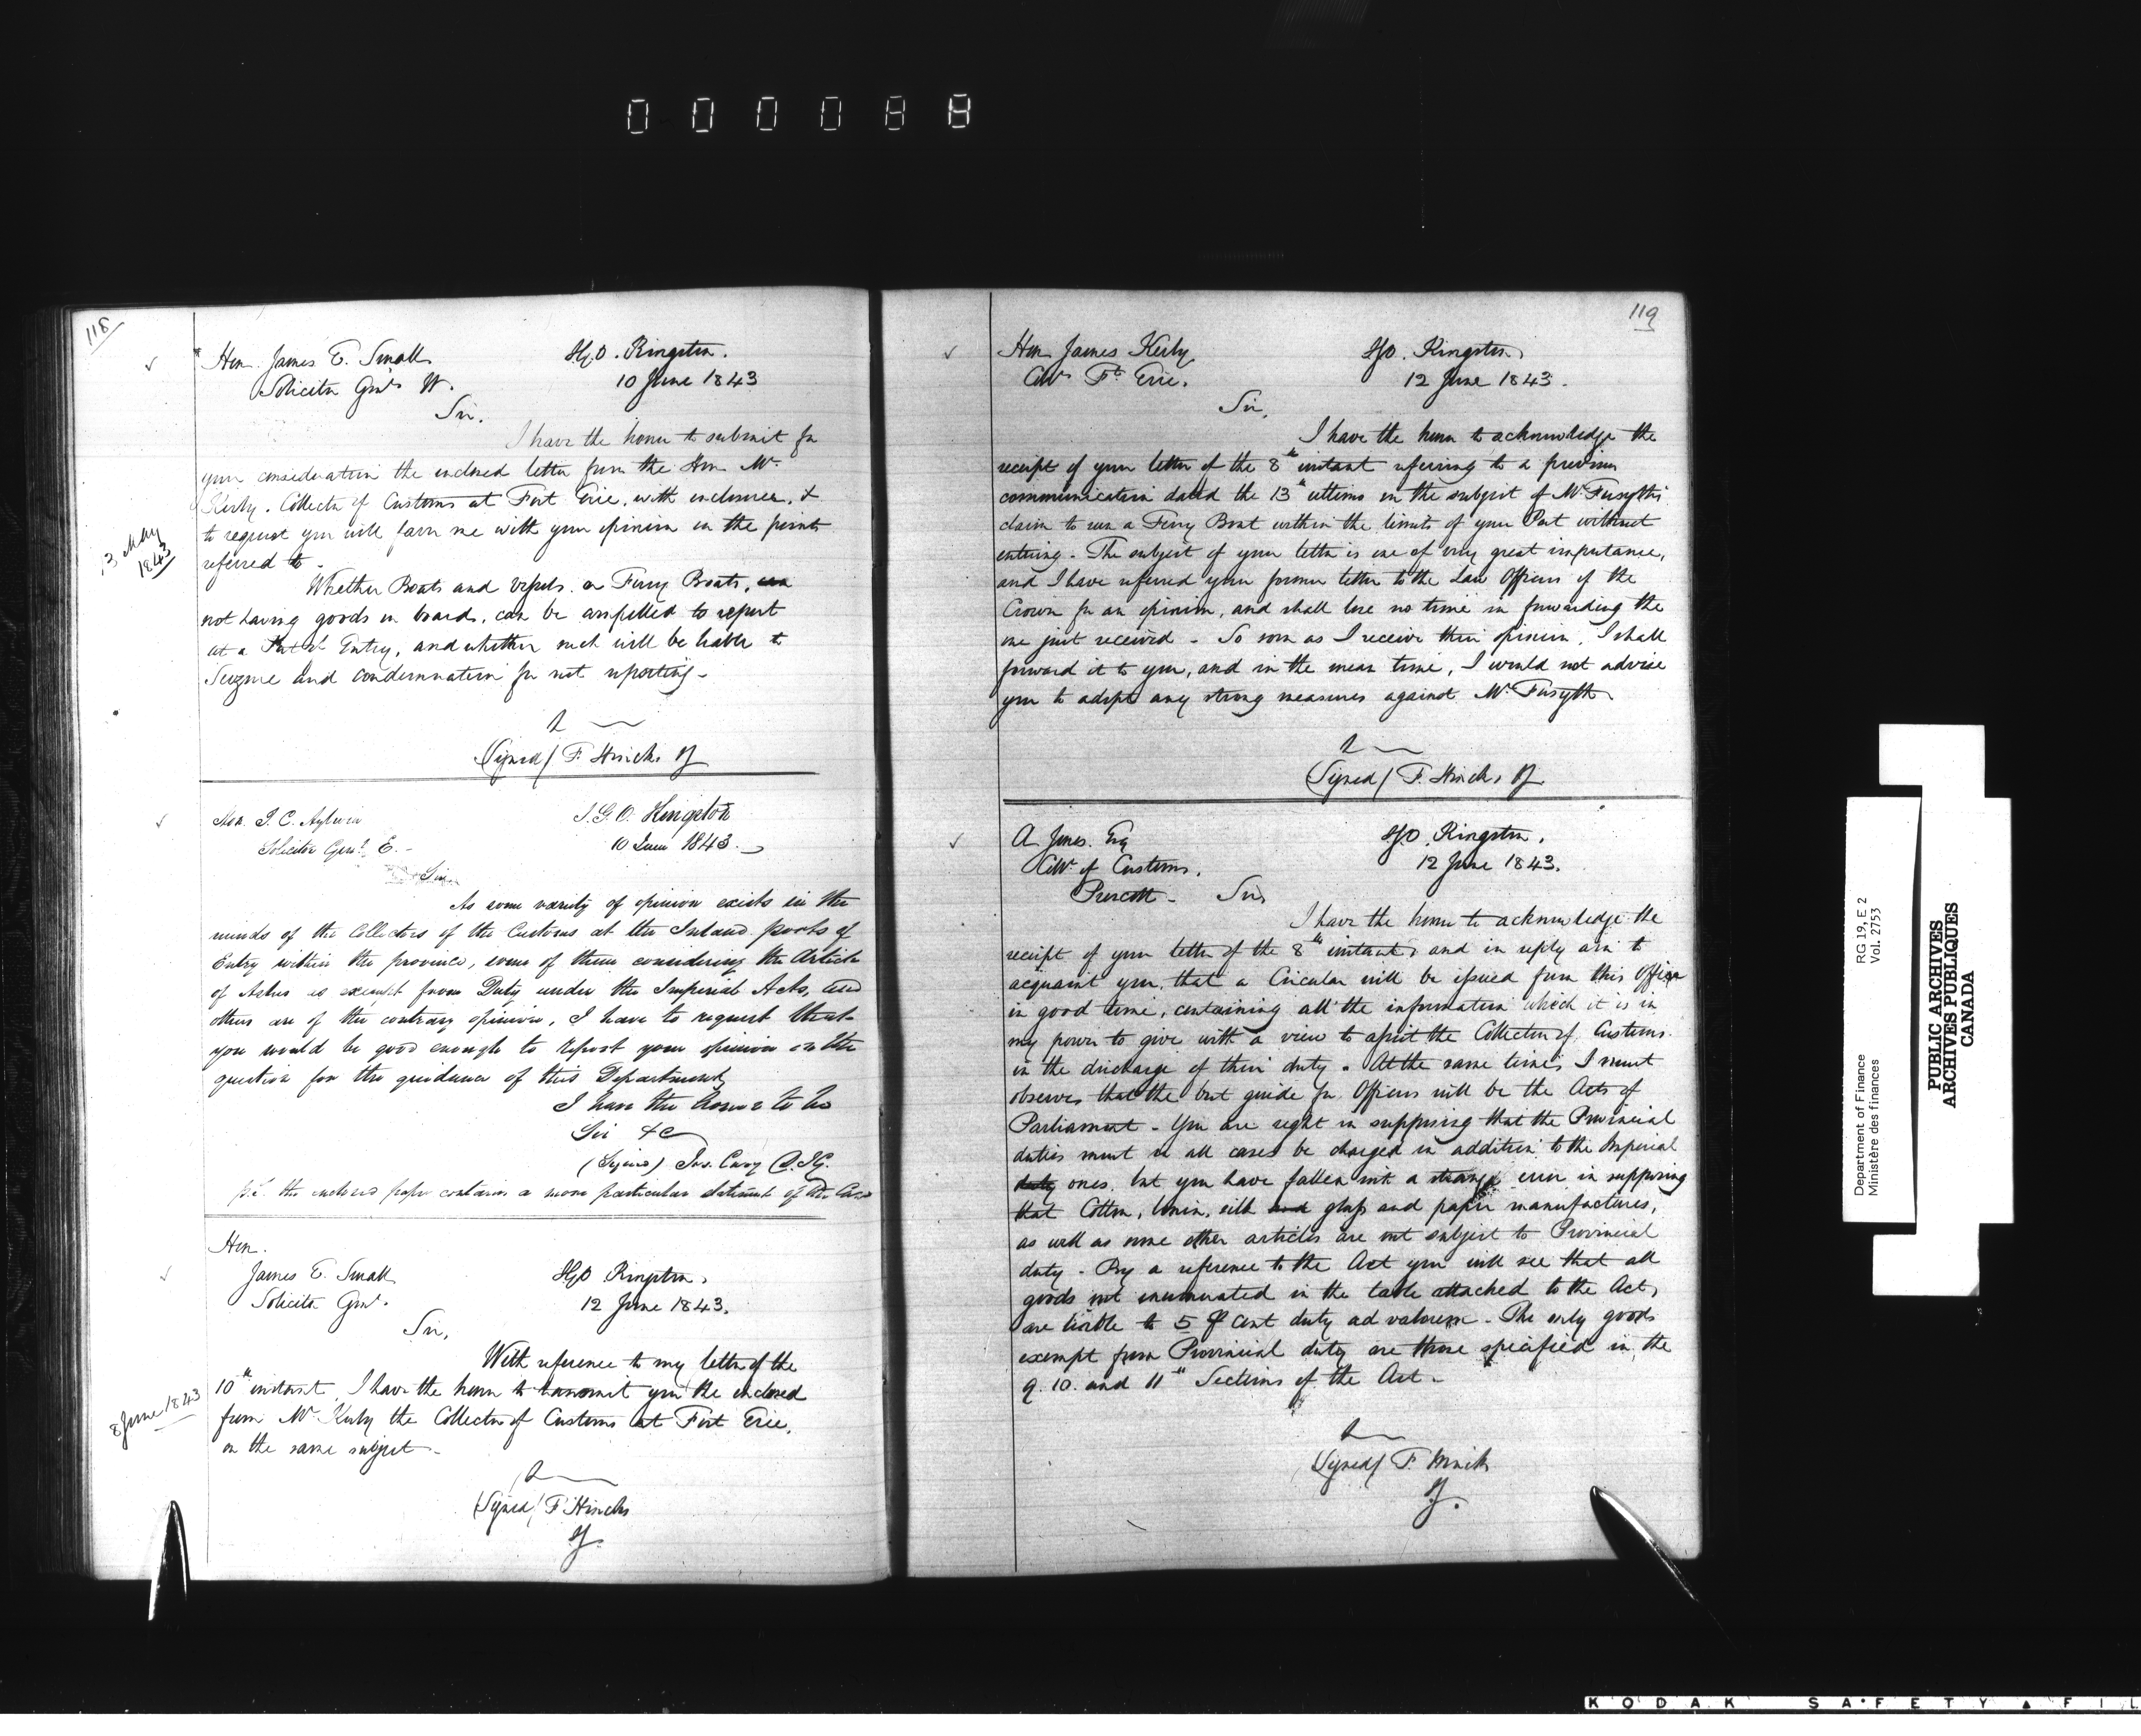 000088
118
Hon. James E. Small
I.G.O. Kingston.
Solicitor Genl. W.
10 June 1843
Sir.
I have the honor to submit for
your consideration the enclosed letter from the Hon. Mr.
Kerby. Collector of Customs at Fort Erie, with enclosures, &
to request you will favor me with your opinion on the points
13 May
1843
referred to.
Whether Boats and Vessels or Ferry Boats,
not having goods on board, can be compelled to report
at a Port of Entry, and whether such will be liable to
Seizure and condemnation for not reporting -
(Signed/ F. Hincks IG
Hon. T. C. Aylwin
I.G.O. Kingston
Solicitor Genl. E. -
10 June 1843.
Sir.
As some variety of opinion exists in the
minds of the Collectors of the Customs at the Inland ports of
Entry within the province, some of them considering the Article
of Ashes as exempt from Duty under the Imperial Acts, and
others are of the contrary opinion, I have to request that
you would be good enough to report your opinion on the
question for the guidance of this Department
I have the honor to be
Sir &c
(Signed) Jos. Cary D.I.G.
P.S. the enclosed paper contains a more particular statement of the Case
Hon.
James E. Small
I.G.O Kingston,
Solicitor Genl.
12 June 1843.
Sir,
With reference to my letter of the
10th instant, I have the honor to transmit you the enclosed
8 June 1843
from Mr. Kerby the Collector of Customs at Fort Erie,
on the same subject -
(Signed/ F Hincks
IG
119
Hon James Kerby
IGO. Kingston
Collr Ft. Erie.
12 June 1843.
Sir,
I have the honor to acknowledge the
receipt of your letter of the 8th instant referring to a previous
communication dated the 13th ultimo on the subject of Mr. Forsyth's
claim to run a Ferry Boat within the limits of your Port without
entering - The subject of your letter is one of very great importance,
and I have referred your former letter to the Law Officers of the
Crown for an opinion, and shall lose no time in forwarding the
one just received - So soon as I receive their opinion, I shall
forward it to you, and in the mean time, I would not advise
you to adopt any strong measures against Mr. Forsyth
(Signed/ F. Hincks IG
A Jones. Esq
IGO. Kingston.
Collr of Customs.
12 June 1843.
Prescott - Sir,
I have the honor to acknowledge the
receipt of your letter of the 8th instant, and in reply am to
acquaint you, that a Circular will be issued from this Office
in good time, containing all the information which it is in
my power to give with a view to assist the Collectors of Customs.
in the discharge of their duty. At the same time, I must
observe that the best guide for Officers will be the Acts of
Parliament - You are right in supposing that the Provincial
duties must in all cases be charged in addition to the Imperial
duty ones, but you have fallen into a strange error in supposing
that Cotton, linen, silk and glass and paper manufactures,
as well as some other articles are not subject to Provincial
duty - By a reference to the Act you will see that all
goods not enumerated in the table attached to the Act,
are liable to 5 ⅌ cent duty ad valorem - The only goods
exempt from Provincial duty are those specified in the
9. 10. and 11th Sections of the Act -
(Signed/ F. Hincks
IG.
Department of Finance RG 19, E 2
Ministère des finances Vol. 2753
PUBLIC ARCHIVES
ARCHIVES PUBLIQUES
CANADA
KODAK SAFETY FIL